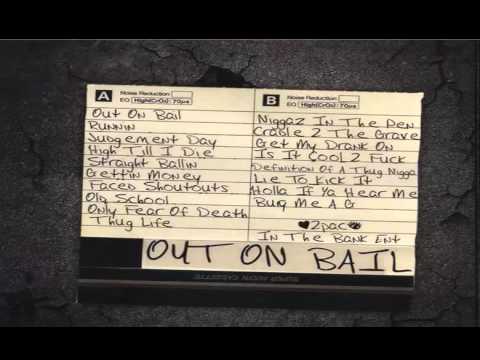 A Noise Reduction
EQ High(CrO2) 70μs
Out On Bail
Runnin
Judgement Day
High Till I Die
Straight Ballin
Gettin Money
Faced Shoutouts
Old School
Only Fear Of Death
Thug Life
B Noise Reduction
EQ High(CrO2) 70μs
Niggaz In The Pen
Cradle 2 The Grave
Get My Drank On
Is It Cool 2 Fuck
Definition Of A Thug Nigga
Lie To Kick It
Holla If Ya Hear Me
Bury Me A G
2pac
In The Bank Ent
OUT ON BAIL